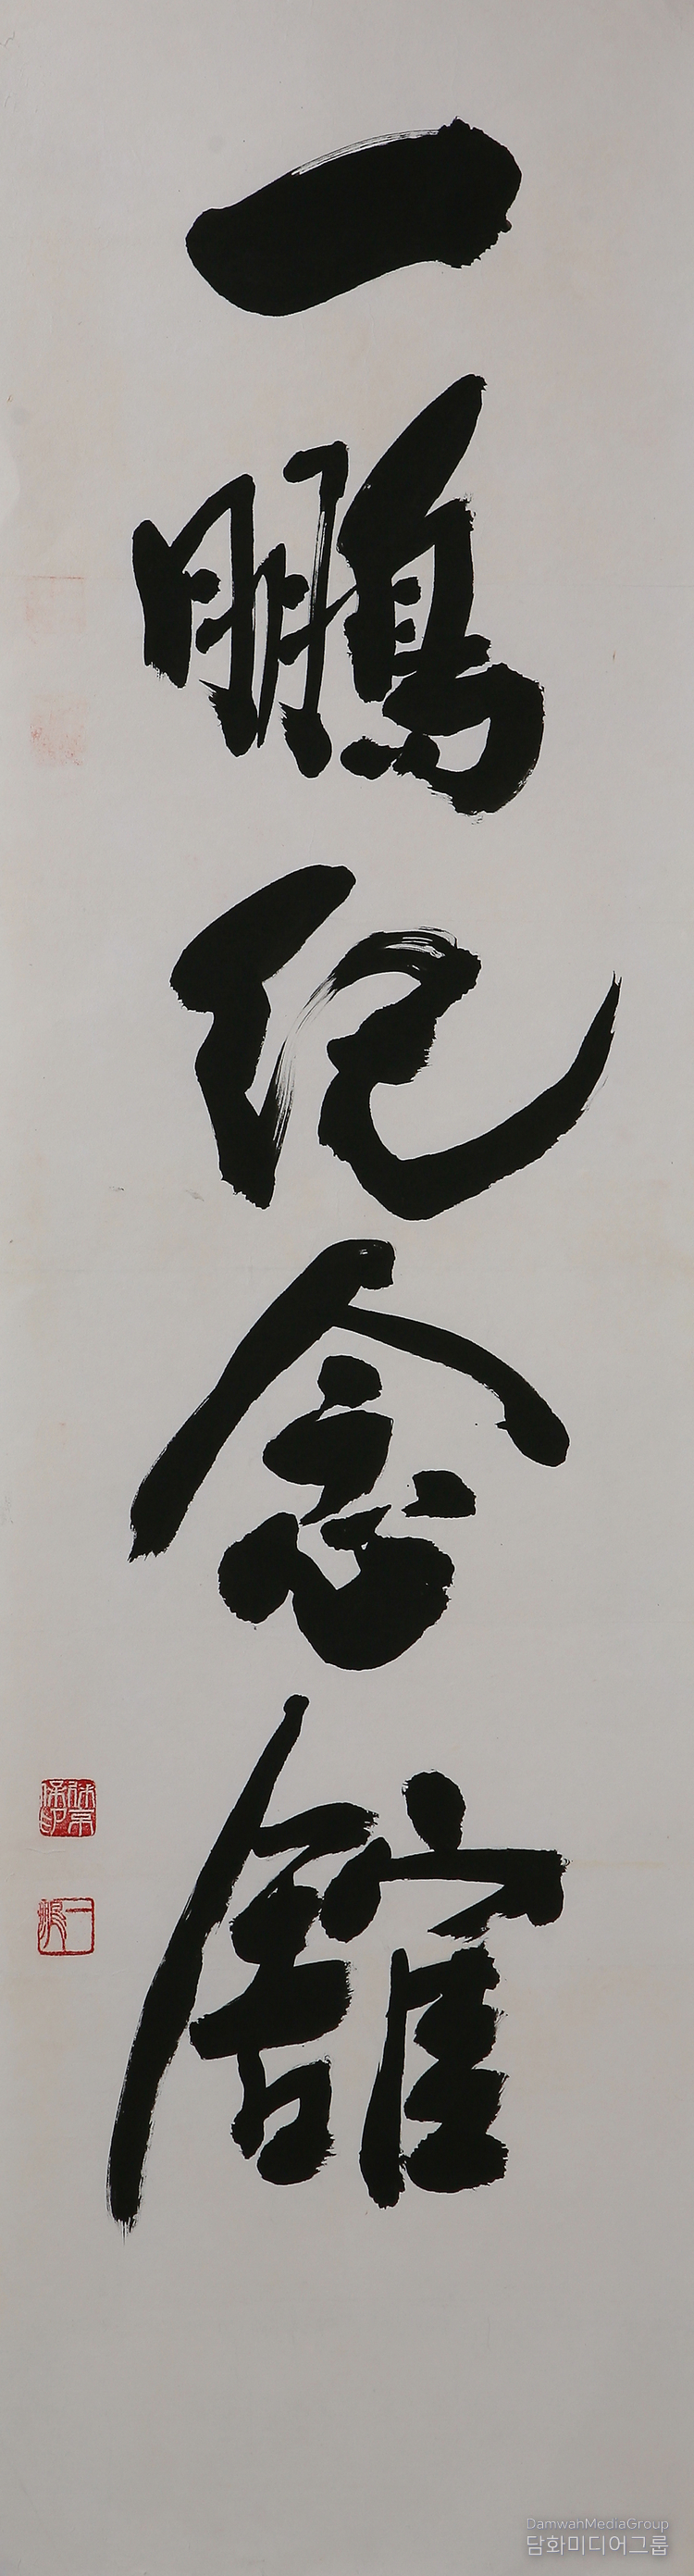 一鵬紀念舘
徐京保印
一鵬
DamwahMediaGroup
담화미디어그룹